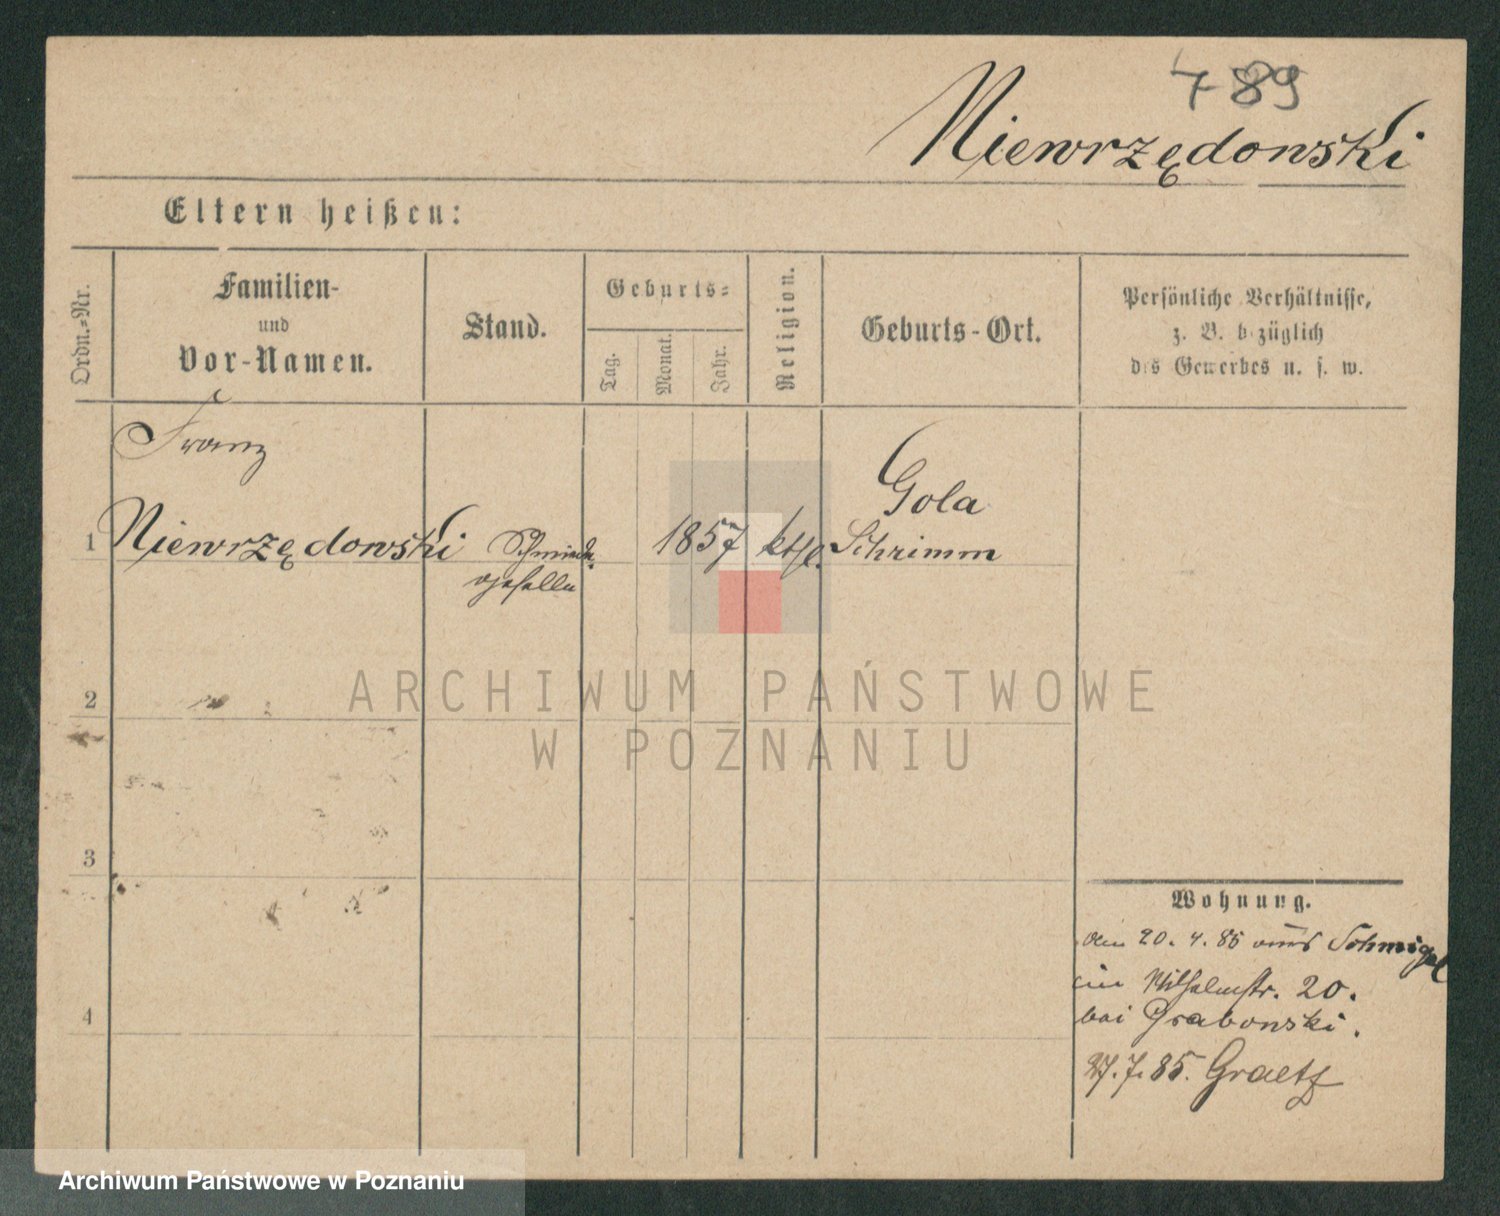 789
Niewrzędowski
Eltern heißen:
Ordn.=Nr.
Familien-
und
Vor-Namen.
Stand.
Geburts=
Tag.
Monat.
Jahr.
Religion.
Geburts-Ort.
Persönliche Verhältnisse,
z. B. bezüglich
des Gewerbes u. s. w.
Franz
Gola
1 Niewrzędowski Schmiede- 1857 kthl. Schrimm
geselle
ARCHIWUM PAŃSTWOWE
W POZNANIU
2
3
4
Wohnung.
den 20. 4. 85 aus Schmigel
in Wilhelmstr. 20.
bei Grabowski.
27. 7. 85. Graetz
Archiwum Państwowe w Poznaniu